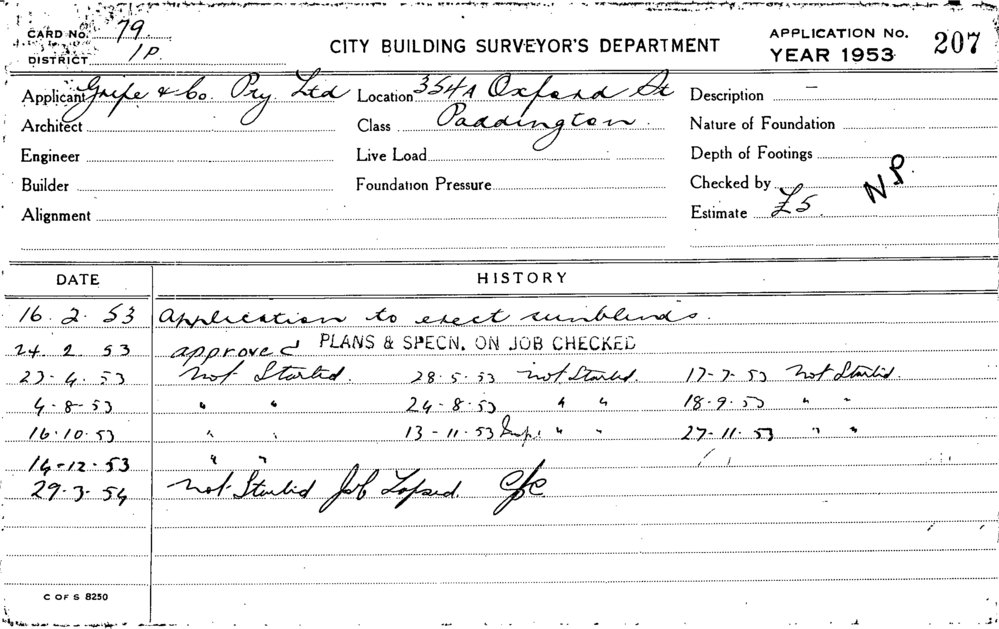 CARD No. 79.
DISTRICT 1P.
CITY BUILDING SURVEYOR'S DEPARTMENT
APPLICATION No. 207
YEAR 1953
Applicant Gripe & Co. Pry Ltd Location 354A Oxford St Description –
Architect Class Paddington. Nature of Foundation
Engineer Live Load Depth of Footings
Builder Foundation Pressure Checked by N.P.
Alignment Estimate £5.
DATE HISTORY
16. 2. 53 Application to erect sunblinds.
24. 2. 53 approved PLANS & SPECN. ON JOB CHECKED
23. 4. 53 Not Started. 28. 5. 53 Not Started. 17-7-53 Not Started.
4-8-53 " " 24-8-53 " " 18.9.53 " "
16.10.53 " " 13-11-53 " " 27-11-53 " "
14-12-53 " "
29.3.54 Not Started Job Lapsed.
C OF S 8250